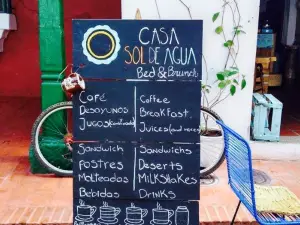 CASA
SOL DE AGUA
Bed & Brunch
Café
Coffee
Desayunos
Breakfast
Jugos
Juices
Sandwich
Sandwichs
Postres
Deserts
Malteadas
Milkshakes
Bebidas
Drinks